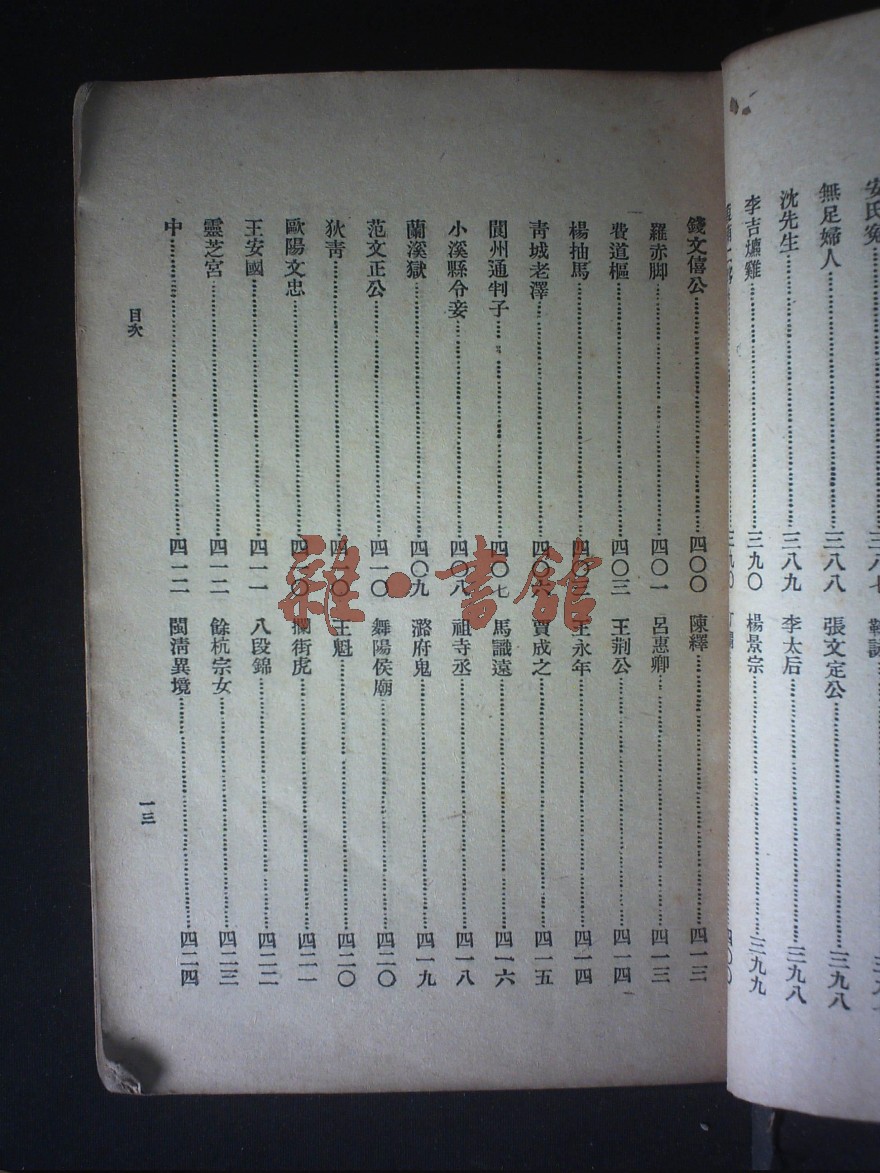 安氏冤
無足婦人……三八八
沈先生……三八九
李吉爊雞……三九〇
張文定公……三九八
李太后……三九八
楊景宗……三九九
錢文僖公……四〇〇
羅赤脚……四〇一
費道樞……四〇三
楊抽馬……四〇三
青城老澤……四〇六
閬州通判子……四〇七
小溪縣令妾……四〇八
蘭溪獄……四〇九
范文正公……四一〇
狄青……四一〇
歐陽文忠……四一〇
王安國……四一一
靈芝宮……四一二
中……四一二
陳繹……四一三
呂惠卿……四一三
王荆公……四一四
王永年……四一四
賈成之……四一五
馬識遠……四一六
祖寺丞……四一八
潞府鬼……四一九
舞陽侯廟……四二〇
王魁……四二〇
攔街虎……四二一
八段錦……四二二
餘杭宗女……四二三
閩清異境……四二四
目次
一三
雜·書館